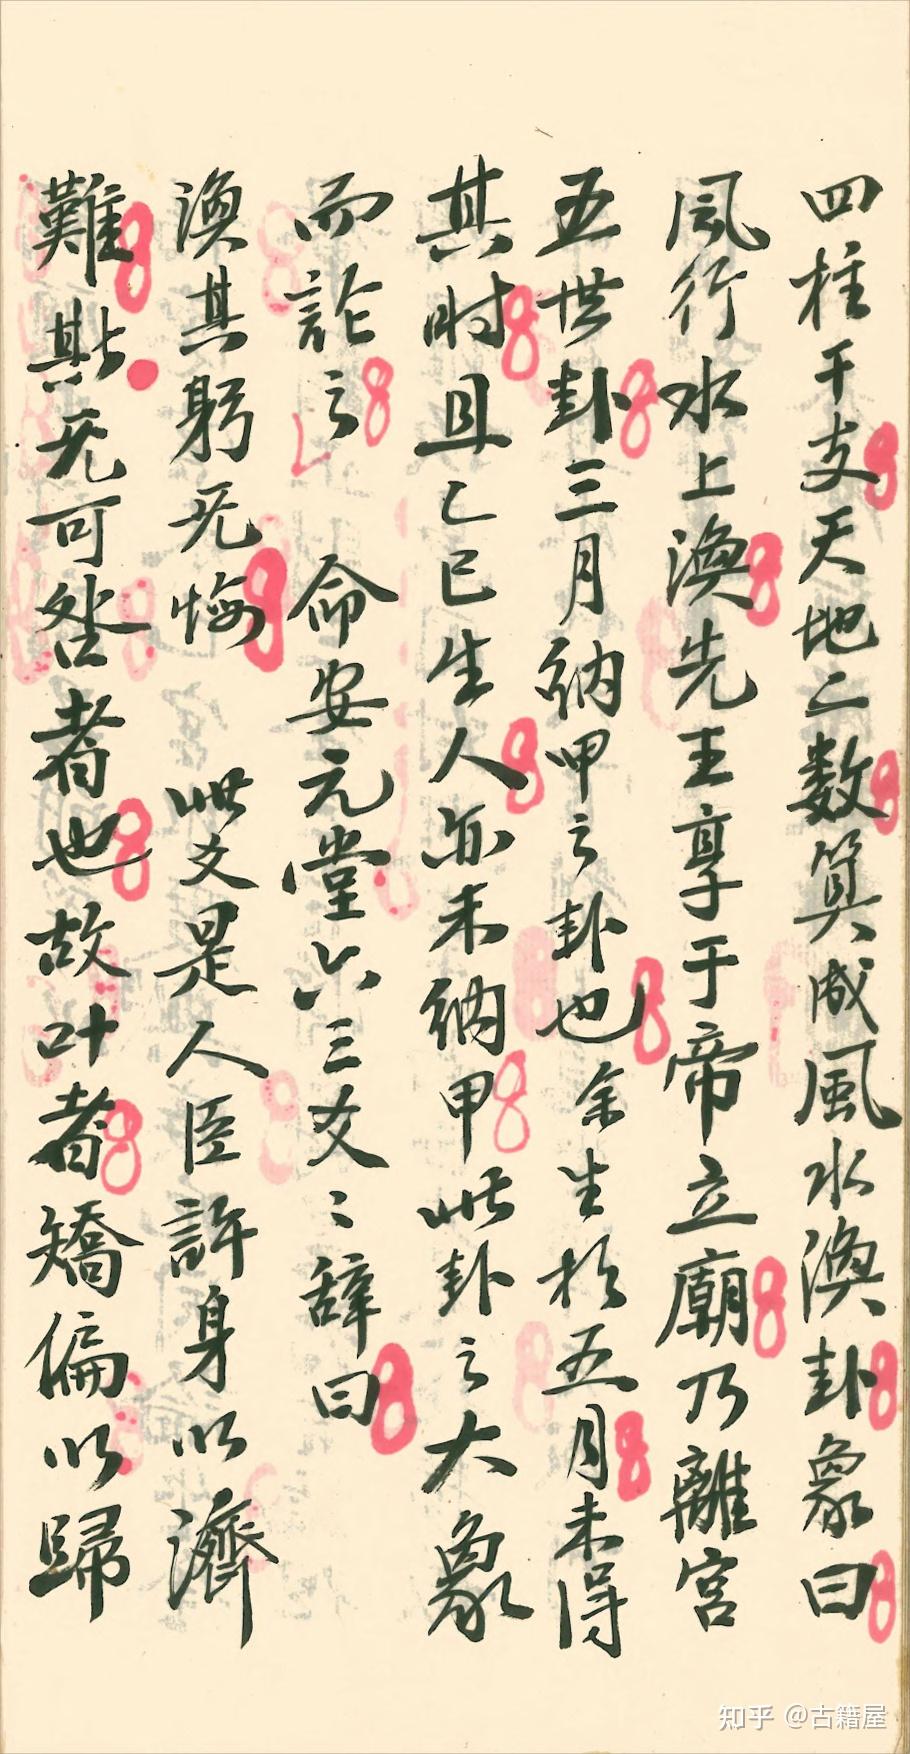 四柱干支天地之数算成風水渙卦象曰
風行水上渙先王享于帝立廟乃離宮
五世卦三月納甲之卦也余生於五月未得
其时且乙巳生人亦未納甲此卦之大象
而論之 命安元堂六三爻〻辞曰
渙其躬无悔 此爻是人臣許身以濟
難斯无可咎者也故叶者矯偏以歸
知乎 @古籍屋